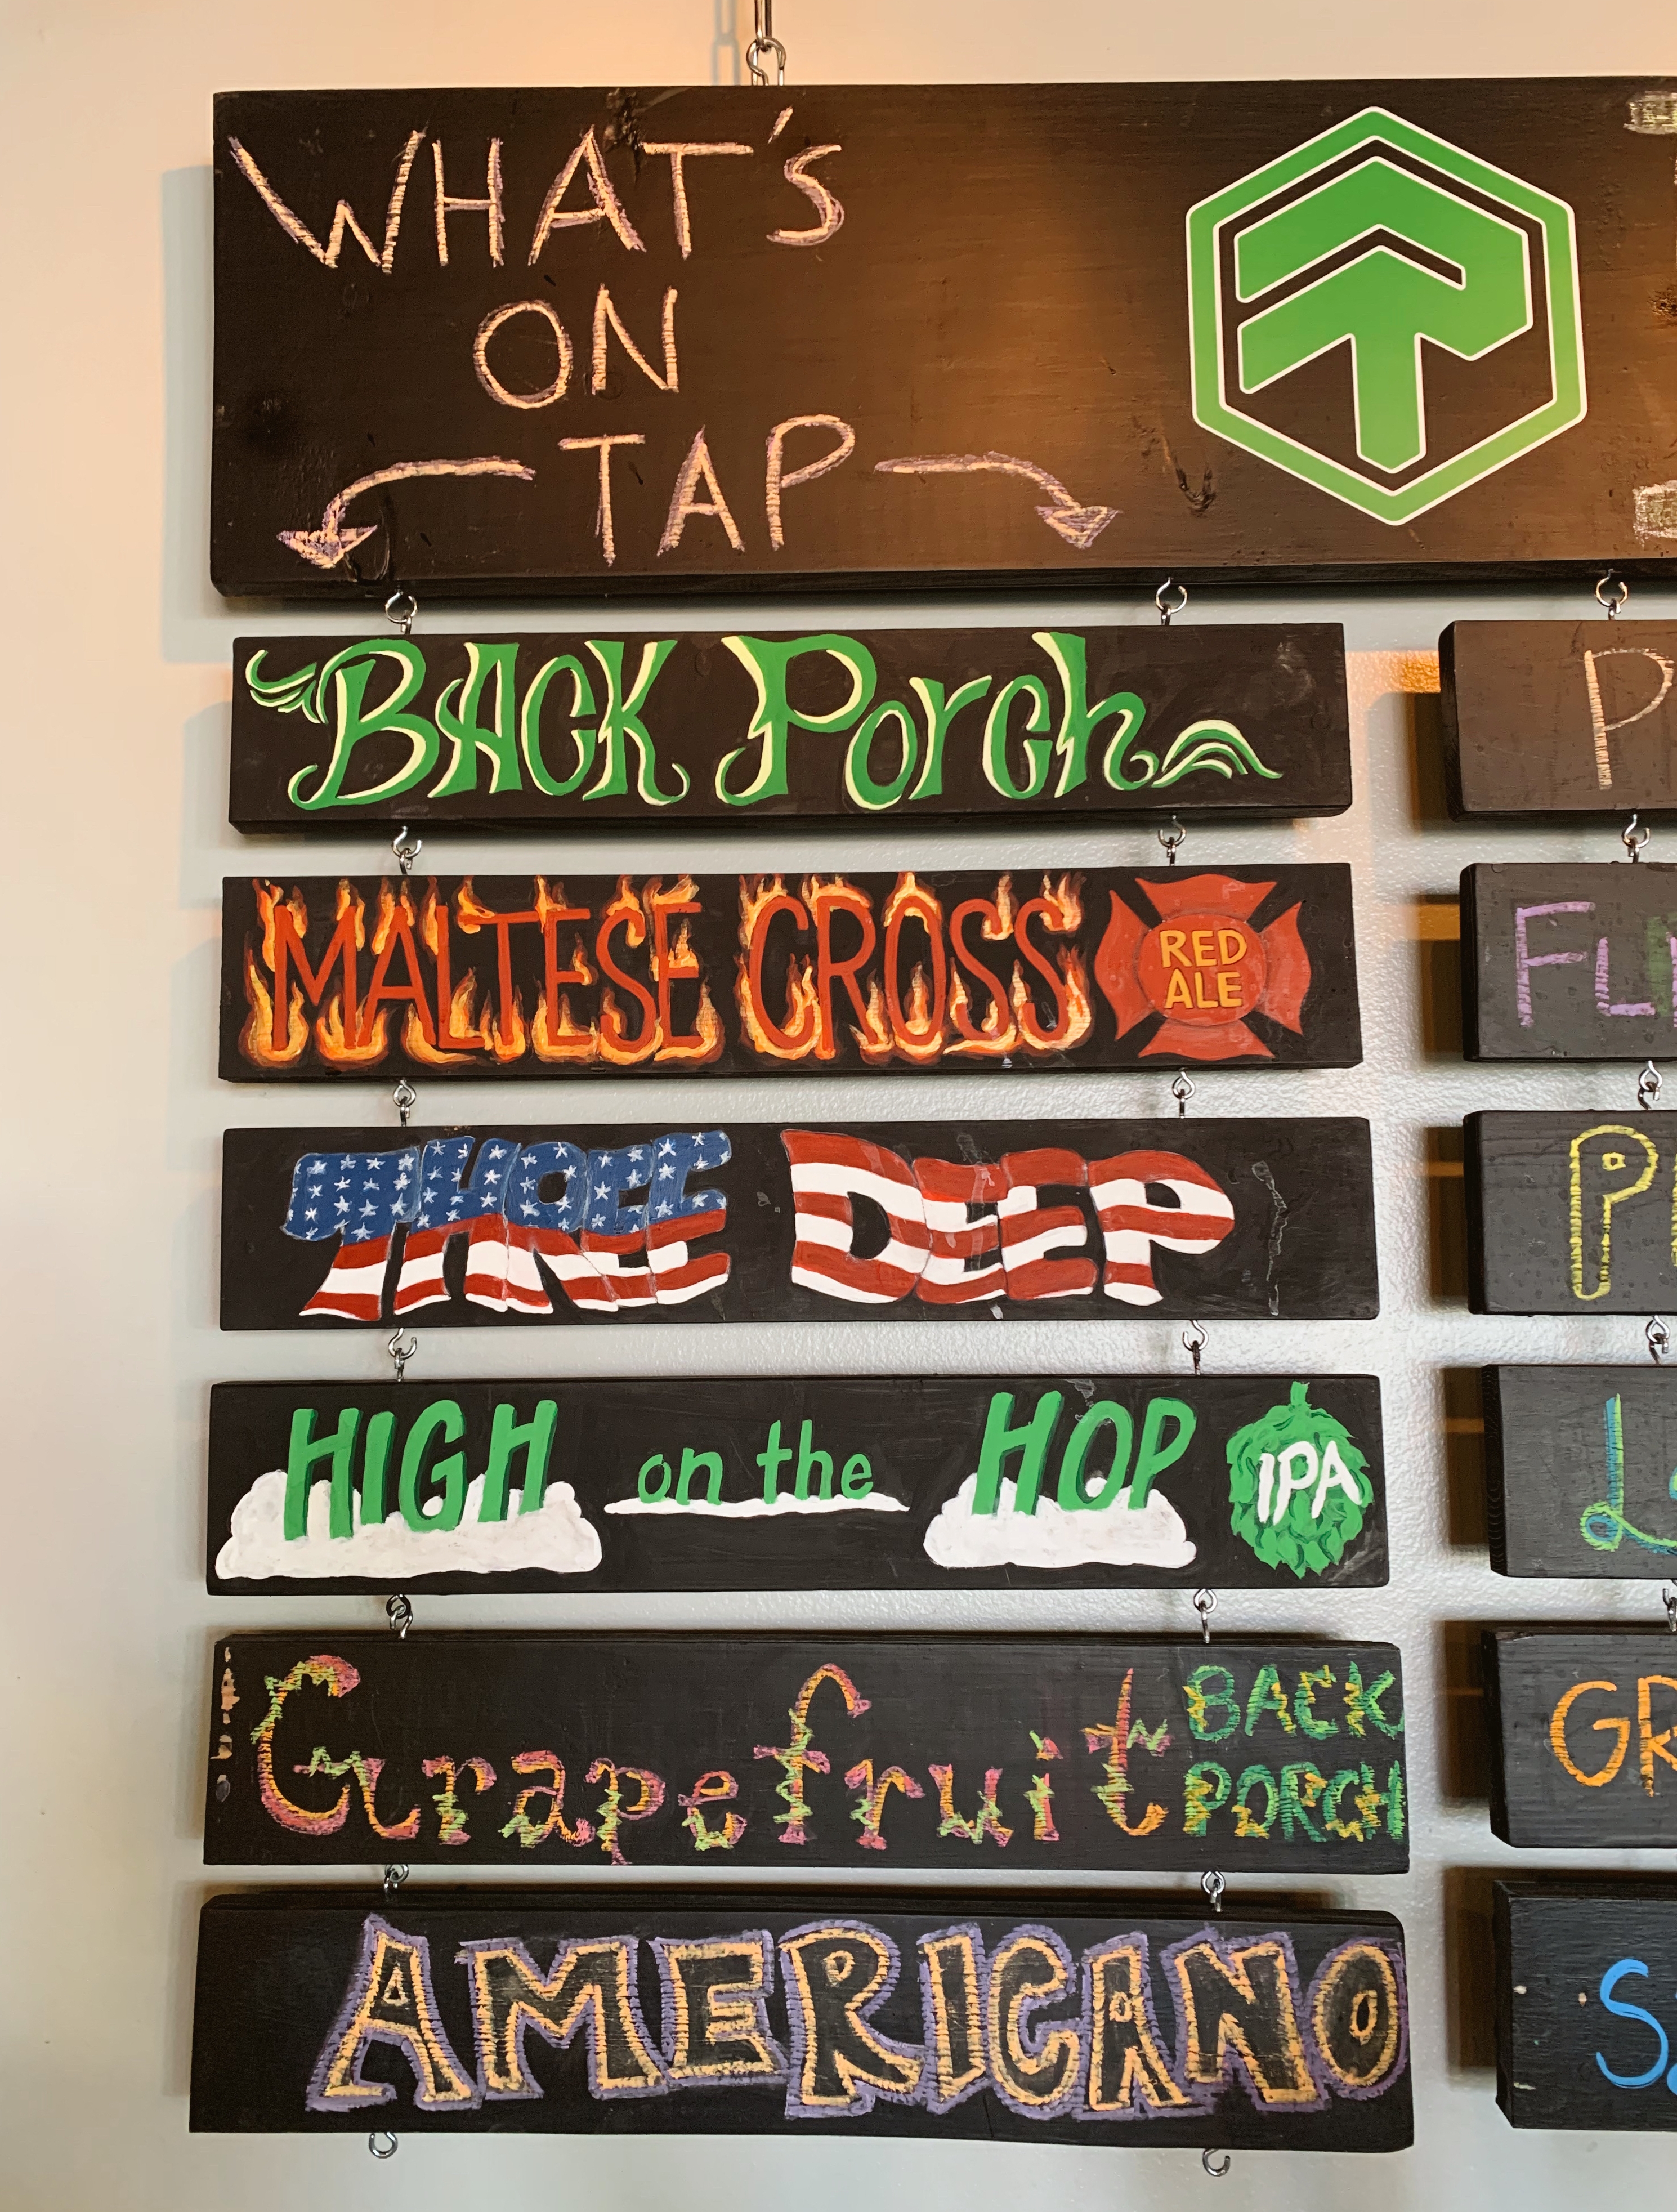 WHAT'S
ON
TAP
BACK Porch
MALTESE CROSS RED ALE
THREE DEEP
HIGH on the HOP IPA
Grapefruit BACK PORCH
AMERICANO